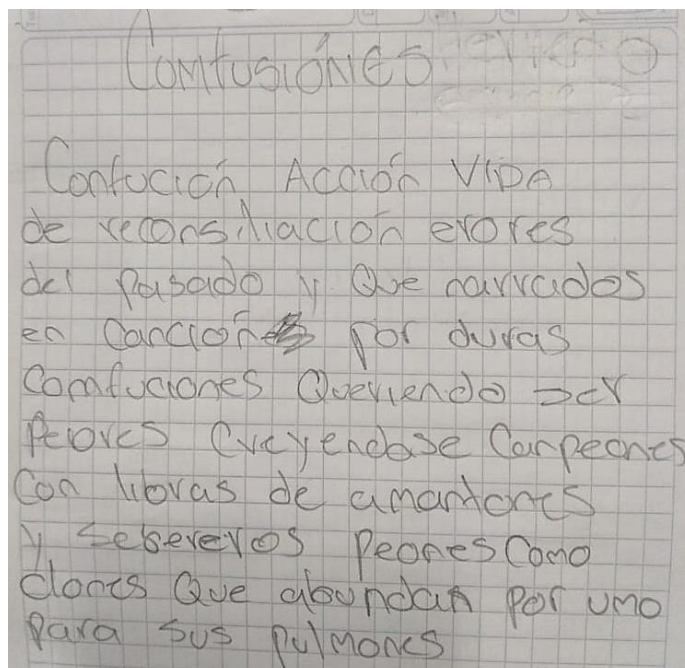 Comfusiónes
Confución Acción VIDA
de reconsiliación erores
del Pasado y Que narrados
en Canción por duras
Comfuciones Queriendo ser
Peores Creyendose Canpeones
Con libras de amantones
y sebereros PeonesComo
clones Que abundan Por umo
Para sus pulmones